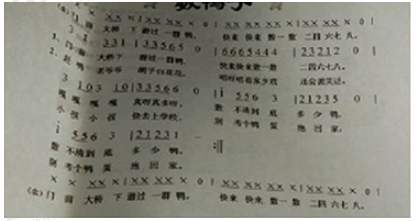 数鸭子
(白)门前 大桥 下 游过 一群 鸭, 快来 快来 数一 数 二四 六七 八。
3 1 3 3 1 | 3 3 5 6 5 0 | 6 6 6 5 4 4 4 | 2 3 2 1 2 0 |
1. 门前 大桥下 游过一群鸭, 快来快来数一数 二四六七八。
2. 赶鸭 老爷爷 胡子白花花, 唱呀唱着家乡戏 还会说笑话。
3 1 0 3 1 0 | 3 3 5 6 6 0 | i 5 5 6 3 | 2 1 2 3 5 0 |
嘎嘎 嘎嘎 真呀真多呀, 数不清到底 多少鸭,
小孩 小孩 快去上学校, 别考个鸭蛋 抱回家,
i 5 5 6 3 | 2 1 2 3 1
数不清到底 多少鸭。
别考个鸭蛋 抱回家。
(白)门 前 大桥 下 游过 一群 鸭, 快来 快来 数一 数 二四 六七 八。